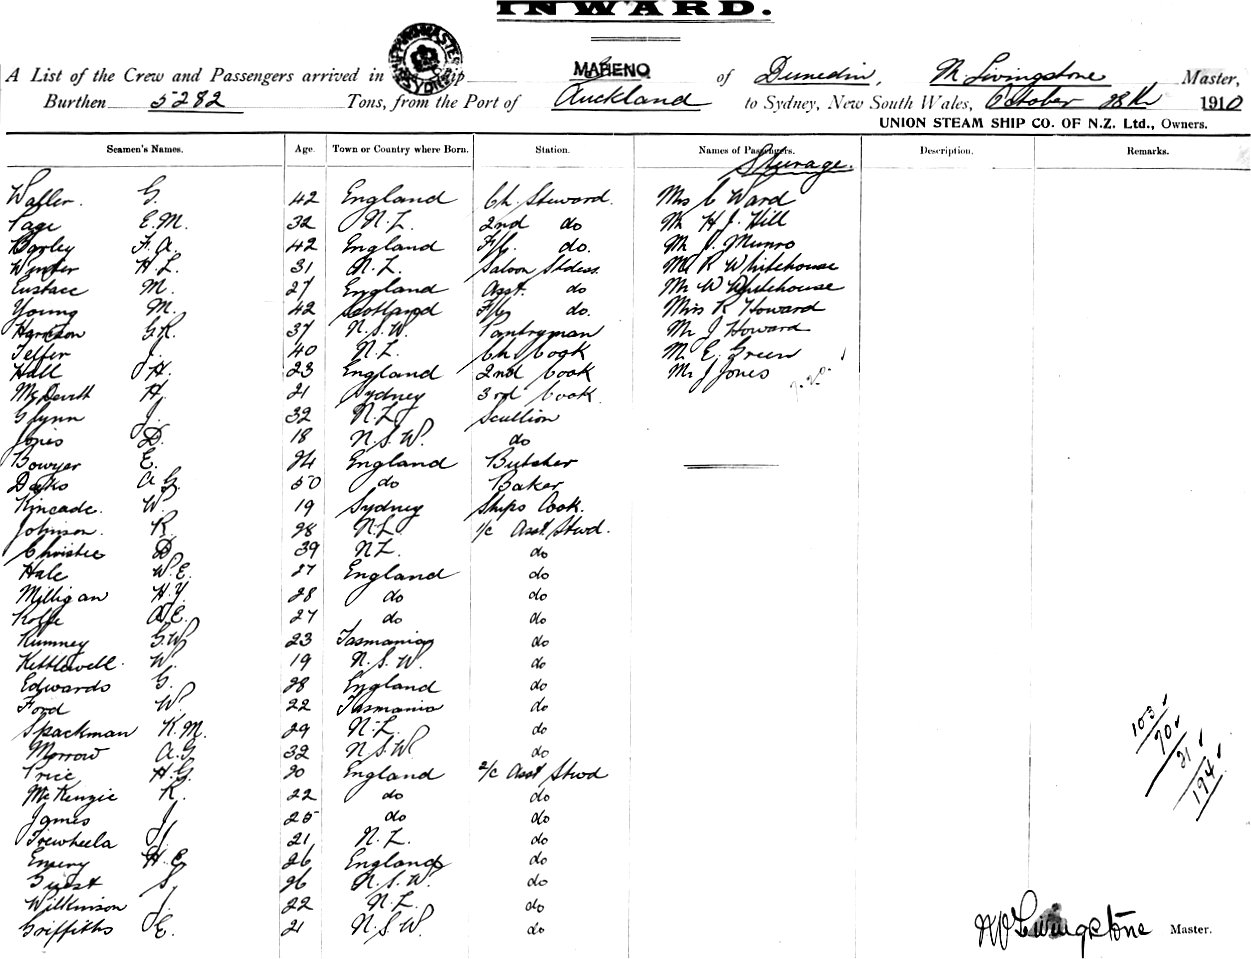 INWARD.
A List of the Crew and Passengers arrived in ship MAHENO of Dunedin, M Livingstone Master,
Burthen 5282 Tons, from the Port of Auckland to Sydney, New South Wales, October 28th 1910
UNION STEAM SHIP CO. OF N.Z. Ltd., Owners.
Seamen's Names. Age. Town or Country where Born. Station. Names of Passengers. Description. Remarks.
Steerage.
Waller G. 42 England Ch. Steward. Mrs C Ward
Page E.M. 32 N.Z. 2nd do Mr H J. Hill
Borley F.A. 42 England F/C. do. Mr J. Munro
Winter H L. 31 N.Z. Saloon Stdess. R Whitehouse
Eustace M. 27 England Asst. do Mr W Whitehouse
Young M. 42 Scotland F/C do. Miss R Howard
Harrison G.R. 37 N.S.W. Pantryman Mr J Howard
Telfer J. 40 N.Z. Ch. Cook M. E. Green
Hall H. 23 England 2nd Cook Mr J Jones
McDevitt H. 21 Sydney 3rd Cook
Glynn J. 32 N.Z. Scullion
Jones D. 18 N.S.W. do
Bowyer E. 24 England Butcher
A G. 50 do Baker
Kincade. W. 19 Sydney Ships Cook.
Johnson. R. 28 N.Z. 1/c Asst Stwd.
Christie D 39 NZ. do
Hale W.E. 27 England do
Milligan H.Y. 28 do do
Rolfe A.E. 27 do do
Rumney G.W. 23 Tasmania do
Kettlewell. W. 19 N.S.W. do
Edwards G. 28 England do
Ford W. 22 Tasmania do
Spackman K.M. 29 N.Z. do
Morrow A.G 32 N.S.W. do
Price H.G. 20 England 2/c Asst Stwd
McKenzie R. 22 do do
James J 25 do do
Trewheela J. 21 N.Z. do
Emery H.E 26 England do
Guest S. 26 N.S.W. do
Wilkinson J. 22 N.Z. do
Griffiths E. 21 N.S.W. do
103
70
21
194
M Livingstone Master.